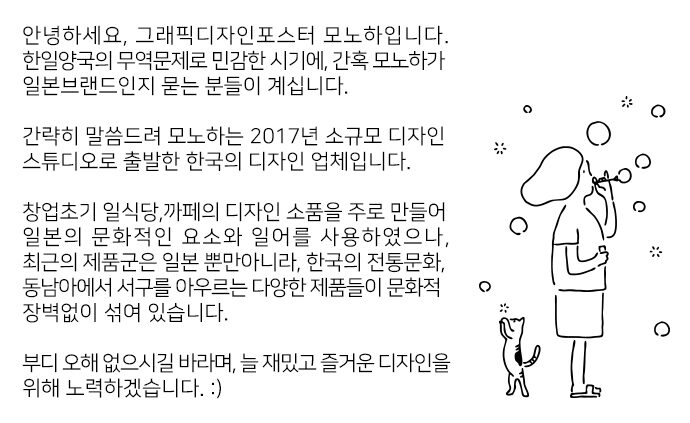 안녕하세요, 그래픽디자인포스터 모노하입니다.
한일양국의 무역문제로 민감한 시기에, 간혹 모노하가
일본브랜드인지 묻는 분들이 계십니다.
간략히 말씀드려 모노하는 2017년 소규모 디자인
스튜디오로 출발한 한국의 디자인 업체입니다.
창업초기 일식당,까페의 디자인 소품을 주로 만들어
일본의 문화적인 요소와 일어를 사용하였으나,
최근의 제품군은 일본 뿐만아니라, 한국의 전통문화,
동남아에서 서구를 아우르는 다양한 제품들이 문화적
장벽없이 섞여 있습니다.
부디 오해 없으시길 바라며, 늘 재밌고 즐거운 디자인을
위해 노력하겠습니다. :)